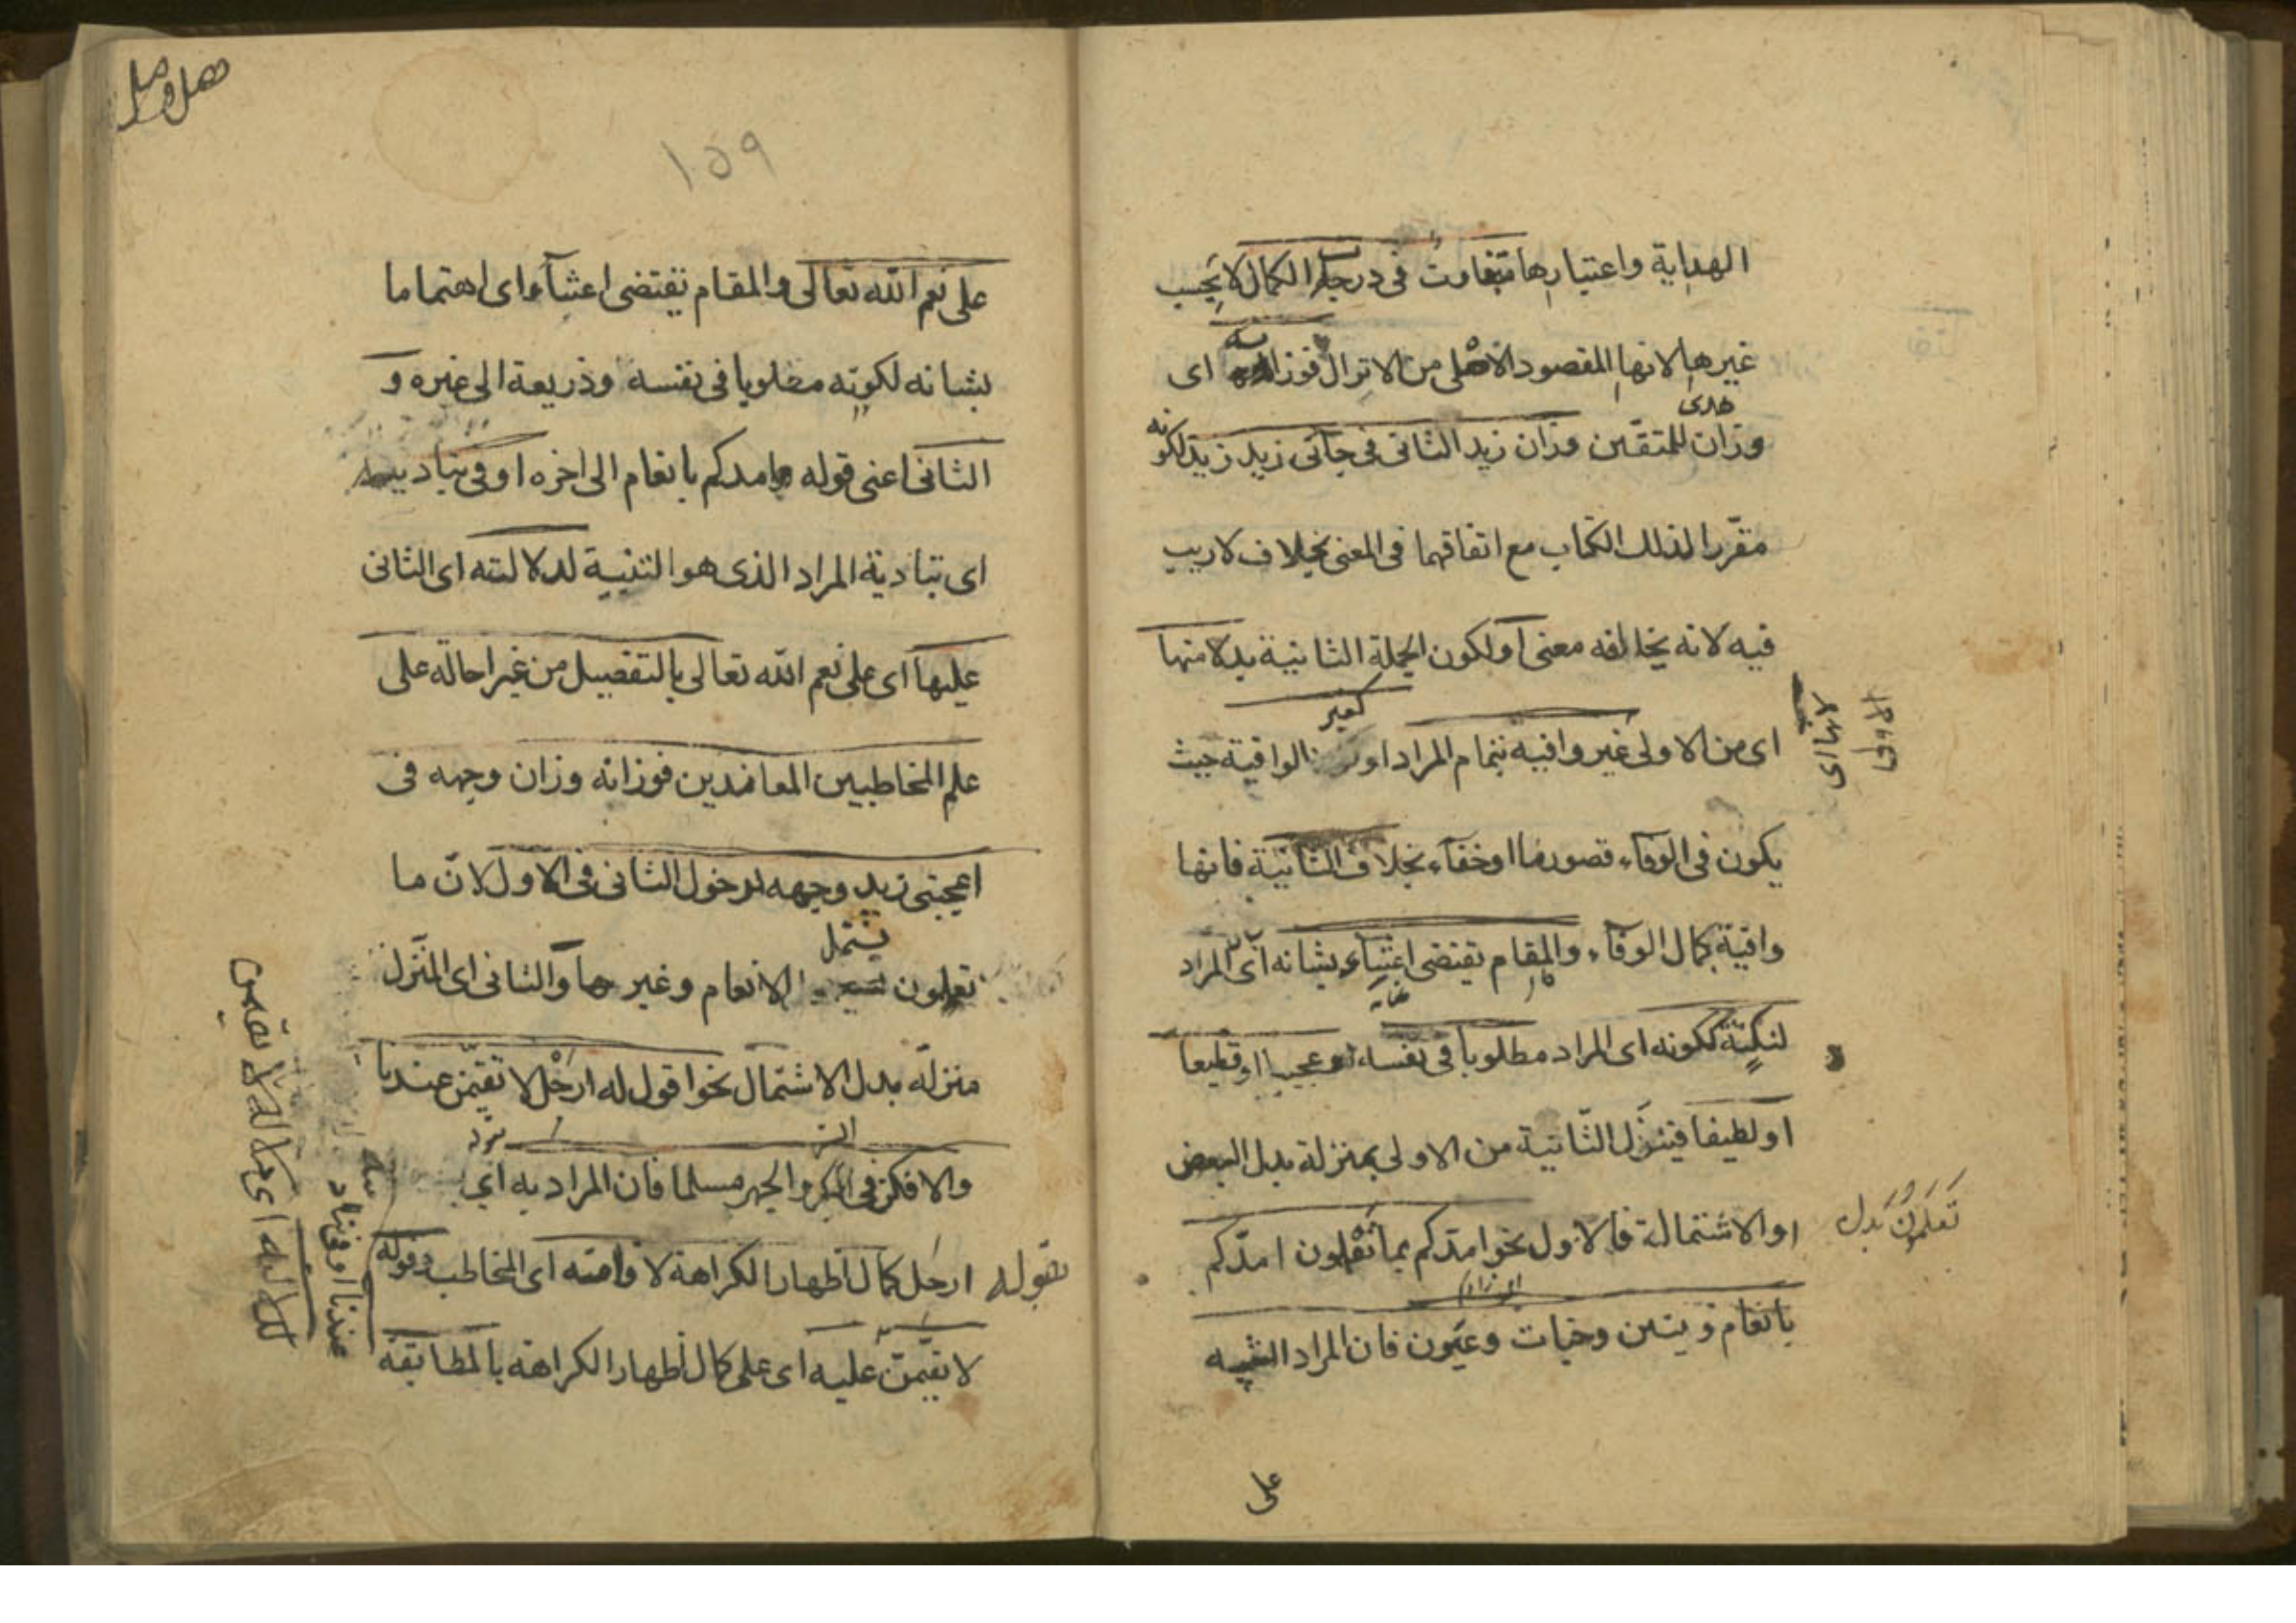 الهداية واعتبارها متفاوت في درجات الكمال لا بحسب
غيرها لانها المقصود الاصلى من الانزال فوزانه اى
هدى
وزان للمتقين وزان زيد الثانى فى جآنى زيد زيد لكونه
مقررا لذلك الكتاب مع اتفاقهما فى المعنى بخلاف لا ريب
فيه لانه يخالفه معنى او لكون الجملة الثانية بدلا منها
لانها اى
الاولى
اى من الاولى غير وافية بتمام المراد او كغير الوافية حيث
يكون فى الوفاء قصور ما او خفاء بخلاف الثانية فانها
وافية كمال الوفاء والمقام يقتضى اعتناء بشانه اى المراد
لنكتة ككونه اى المراد مطلوبا فى نفسه او عجيبا او فظيعا
او لطيفا فينزل الثانية من الاولى بمنزلة بدل البعض
او الاشتمالة فالاول نحو امدكم بما تعلمون امدكم
تعلمون بدل
بانعام وبنين وجنات وعيون فان المراد التنبيه
على
١٥٩
على نعم الله تعالى والمقام تقتضى اعتناء اى اهتماما
بشانه لكونه مطلوبا فى نفسه وذريعة الى غيره و
الثانى اعنى قوله امدكم بانعام الى اخره اوفى بتاديته
اى بتادية المراد الذى هو التنبيه لدلالته اى الثانى
عليها اى على نعم الله تعالى بالتفصيل من غير احالة على
علم المخاطبين المعاندين فوزانه وزان وجهه فى
اعجبنى زيد وجهه لدخول الثانى فى الاول لان ما
تعلمون يشتمل الانعام وغيرها والثانى اى المنزل
منزلة بدل الاشتمال نحو اقول له ارحل لا تقيمن عندنا
والا فكن فى السر والجهر مسلما فان المراد به اى
بقوله ارحل كمال اظهار الكراهة لاقامته اى المخاطب وقوله
لا تقيمن عليه اى على كمال اظهار الكراهة بالمطابقة
عندنا اوفى بتاديته